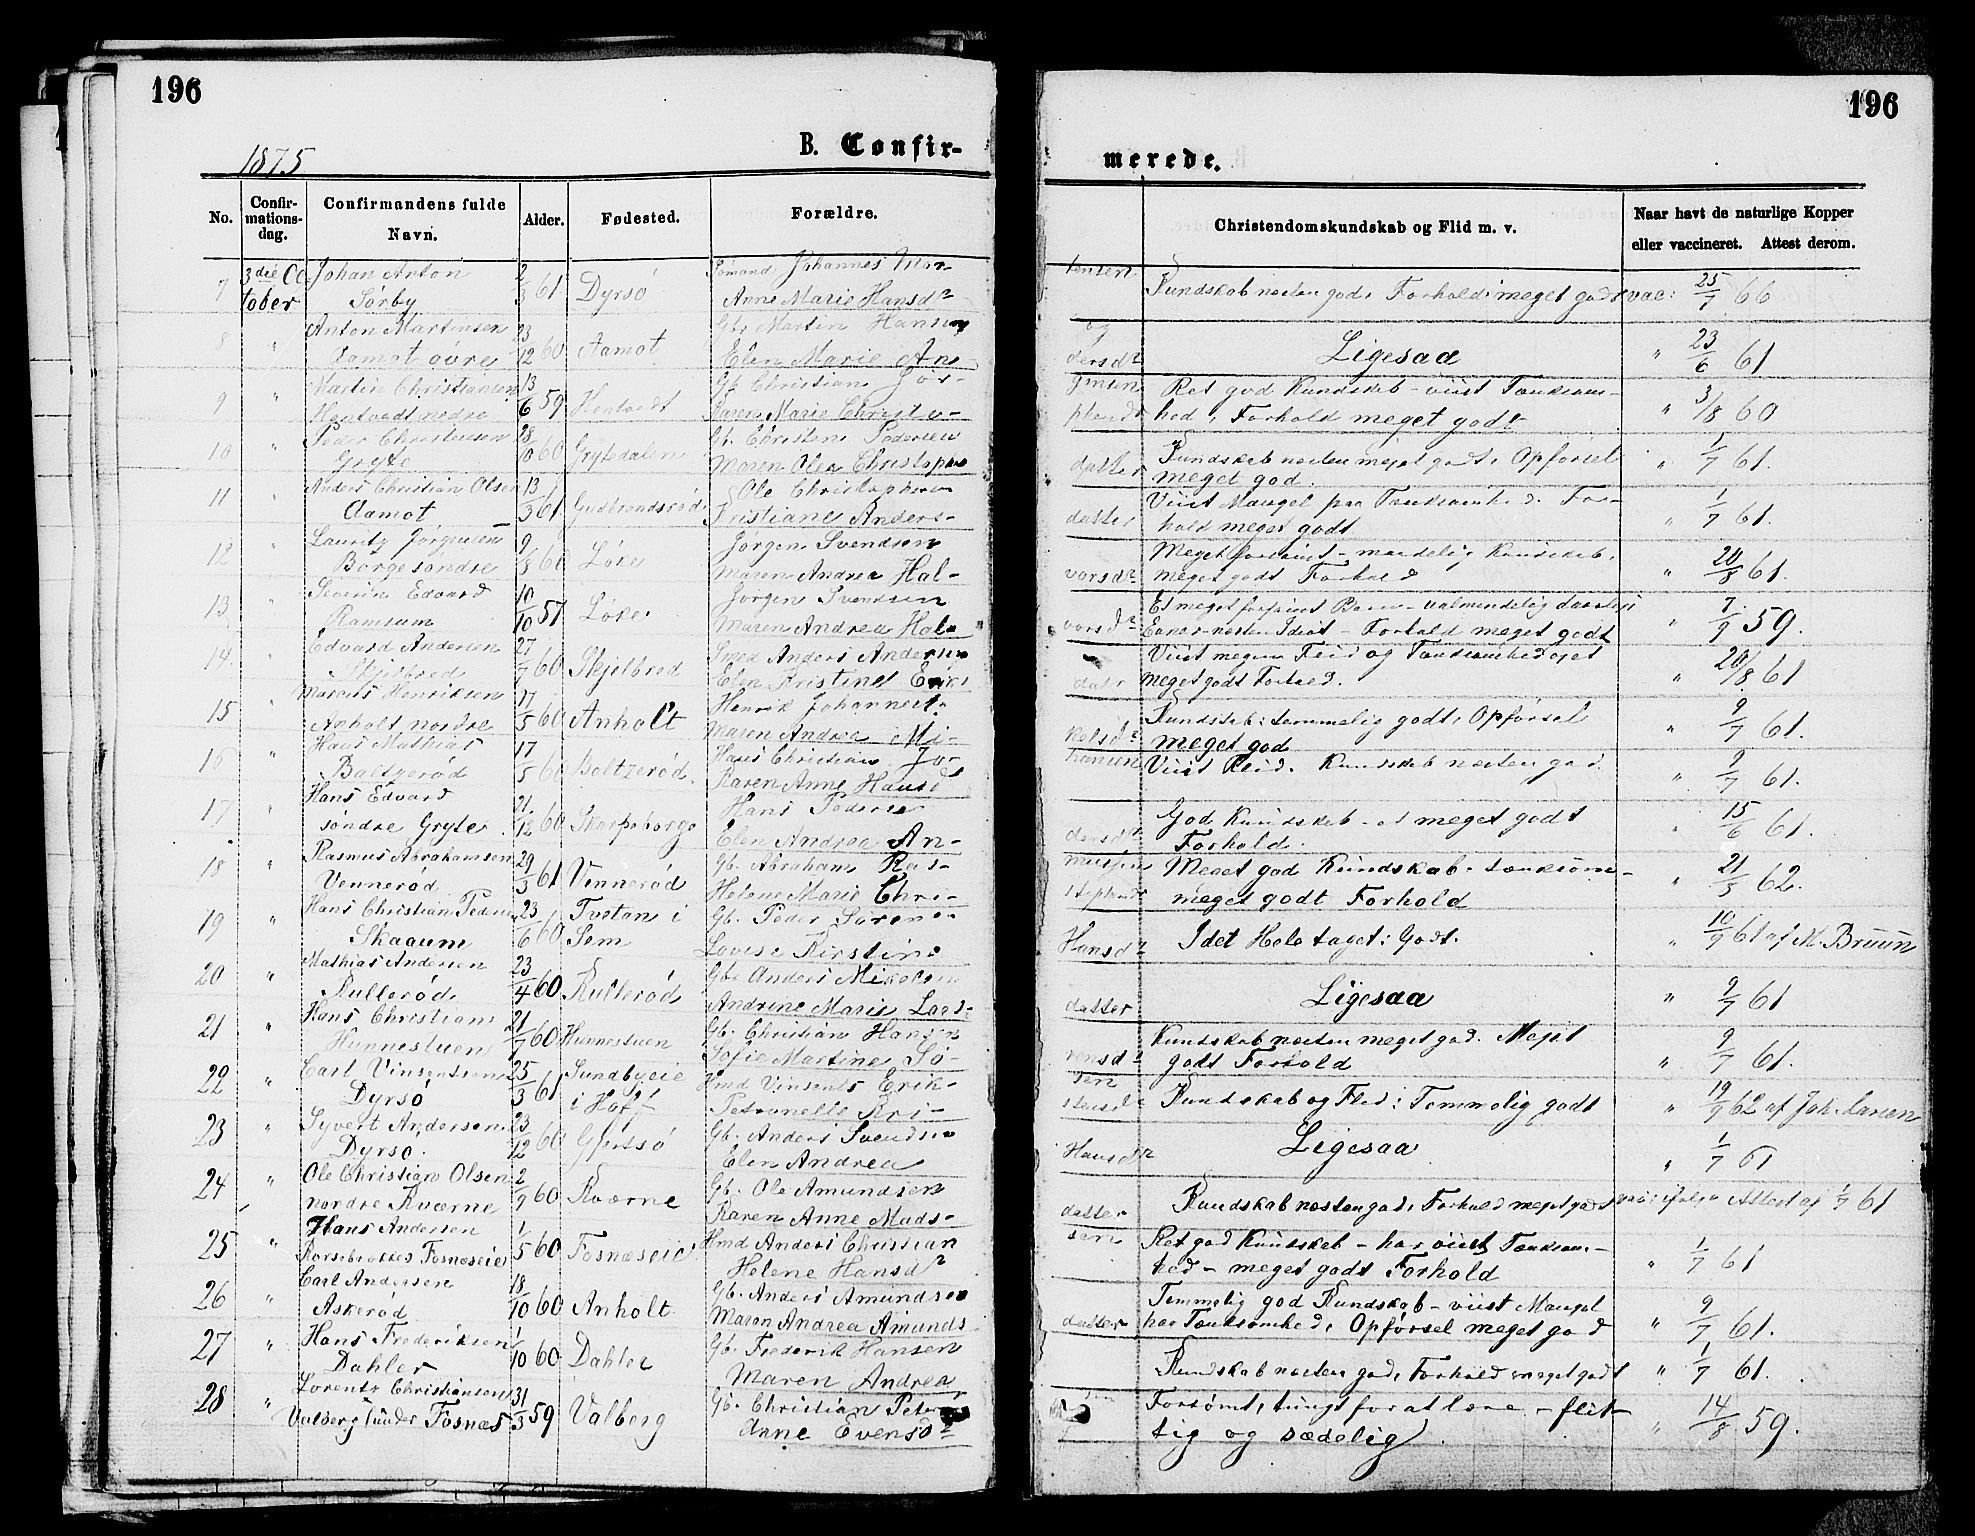 196
196
B. Confir-
merede.
1875
No.
Confir-
mations-
dag.
Confirmandens fulde
Navn.
Alder.
Fødested.
Forældre.
Christendomskundskab og Flid m. v.
Naar havt de naturlige Kopper
eller vaccineret. Attest derom.
7 3die Oc Johan Anton 2/3 61 Dyrsø Sømand Johannes Mor-
tober Sørby Anne Marie Hansdr
tensen Kundskab næsten god, Forhold: meget godt vac: 25/7 66
8 " Anton Martinsen 23/12 60 Aamot Gb. Martin Hansen
Aamot øvre Elen Marie An
og dersdr Ligesaa " 23/6 61
9 " Martin Christiansen 13/6 59 Hentvedt Gb. Christian Jør-
Hentvedt nedre Karen Marie Christo-
gensen Ret god Kundskab - viist Tænksom-
phersdr hed, Forhold meget godt " 3/8 60
10 " Peder Christensen 28/10 60 Grytedalen Gb. Christen Pedersen
Gryte Maren Olea Christopher
datter Kundskab næsten meget godt, Opførsel " 1/7 61.
meget god.
11 " Anders Christian Olsen 13/3 61 Gudbrandsrød Ole Christophersen
Aamot Kristiane Anders-
datter Viist Mangel paa Tænksomhed. For-
hold meget godt " 1/7 61.
12 " Lauritz Jørgensen 9/8 60 Løke Jørgen Svendsen
Borge søndre Maren Andrea Hal-
vorsdr Meget forsømt - maadelig Kundskab,
meget godt Forhold " 20/8 61.
13 " Severin Edvard 10/10 57 Løke Jørgen Svendsen
Ramsum Maren Andrea Hal
vorsdr Et meget forsømt Barn - ualmindelig daarlige
Evner - næsten Idiot - Forhold meget godt " 7/9 59.
14 " Edvard Andersen 27/7 60 Skjelbred Smed Anders Andersen
Skjelbred Elen Kristine Eriks
datr Viist megen Flid og Tænksomhed og et
meget godt Forhold. " 20/8 61
15 " Marcus Henriksen 17/5 60 Anholt Henrik Johannes
Anholt nordre Maren Andrea Mi-
kelsdr Kundskab: temmelig godt, Opførsel
meget god " 9/7 61.
16 " Hans Mathias 17/5 60 Boltzerød Hans Christian Jo-
Baltzerød Karen Anne Hansd
hansen Viist Flid. Kundskab næsten god. " 9/7 61.
17 " Hans Edvard 21/12 60 Skorpeborge Hans Pedersen
søndre Gryte Elen Andrea An-
dersdr God Kundskab - et meget godt
Forhold. " 15/6 61.
18 " Rasmus Abrahamsen 29/3 61 Vennerød Gb. Abraham Ras-
Vennerød Helene Marie Chri-
mussen Meget god Kundskab. tænksom -
stophersdr meget godt Forhold " 21/5 62.
19 " Hans Christian Peders 23/6 60 Tvetan i Gb. Peder Sørens
Skaaum Sem Lovise Kirstine
Hansdr I det Hele taget: Godt. " 10/9 61 af M. Bruun
20 " Mathias Andersen 23/4 60 Rullerød Gb. Anders Mikelsen
Rullerød Andrine Marie Lars-
datter Ligesaa " 9/7 61
21 " Hans Christian 21/7 60 Hunnestuen Gb. Christian Hansen
Hunnestuen Sofie Martine Sø-
rensdr Kundskab næsten meget god. Meget
godt Forhold " 9/7 61.
22 " Carl Vinsentsen 25/3 61 Sundbyeie Hmd Vinsents Erik-
Dyrsø i Hoff Petronelle Kri-
sen
stiansdr Kundskab og Flid: Temmelig godt " 19/9 62 af Joh. Larsen
23 " Syvert Andersen 23/12 60 Gjertsø Gb. Anders Svendsen
Dyrsø. Elen Andrea
Hansdr Ligesaa " 1/7 61
24 " Ole Christian Olsen 2/9 60 Kværne Gb. Ole Amundsen
nordre Kværne Karen Anne Mads-
datter Kundskab næsten god, Forhold meget godt vac: ifølge Attest af 1/7 61
25 " Hans Andersen 1/5 60 Fosnæseie Hmd Anders Christian
Korsebakken Fosnæseie Helene Hansdr
sen Ret god Kundskab - har viist Tænksom-
hed - meget godt Forhold " 1/7 61
26 " Carl Andersen 18/10 60 Anholt Gb. Anders Amundsen
Askerød Maren Andrea Amunds
datter Temmelig god Kundskab - viist Mangel
paa Tænksomhed, Opførsel meget god " 9/7 61.
27 " Hans Frederiksen 1/10 60 Dahler Gb. Frederik Hansen
Dahler Maren Andrea
Kundskab næsten god, Forhold meget godt " 1/7 61.
28 " Lorentz Christiansen 31/3 59 Valberg Gb. Christian Peter
Valberg under Fosnæs Anne Evensdr
Forsømt, tungt for at lære - flit-
tig og sædelig. " 14/8 59.